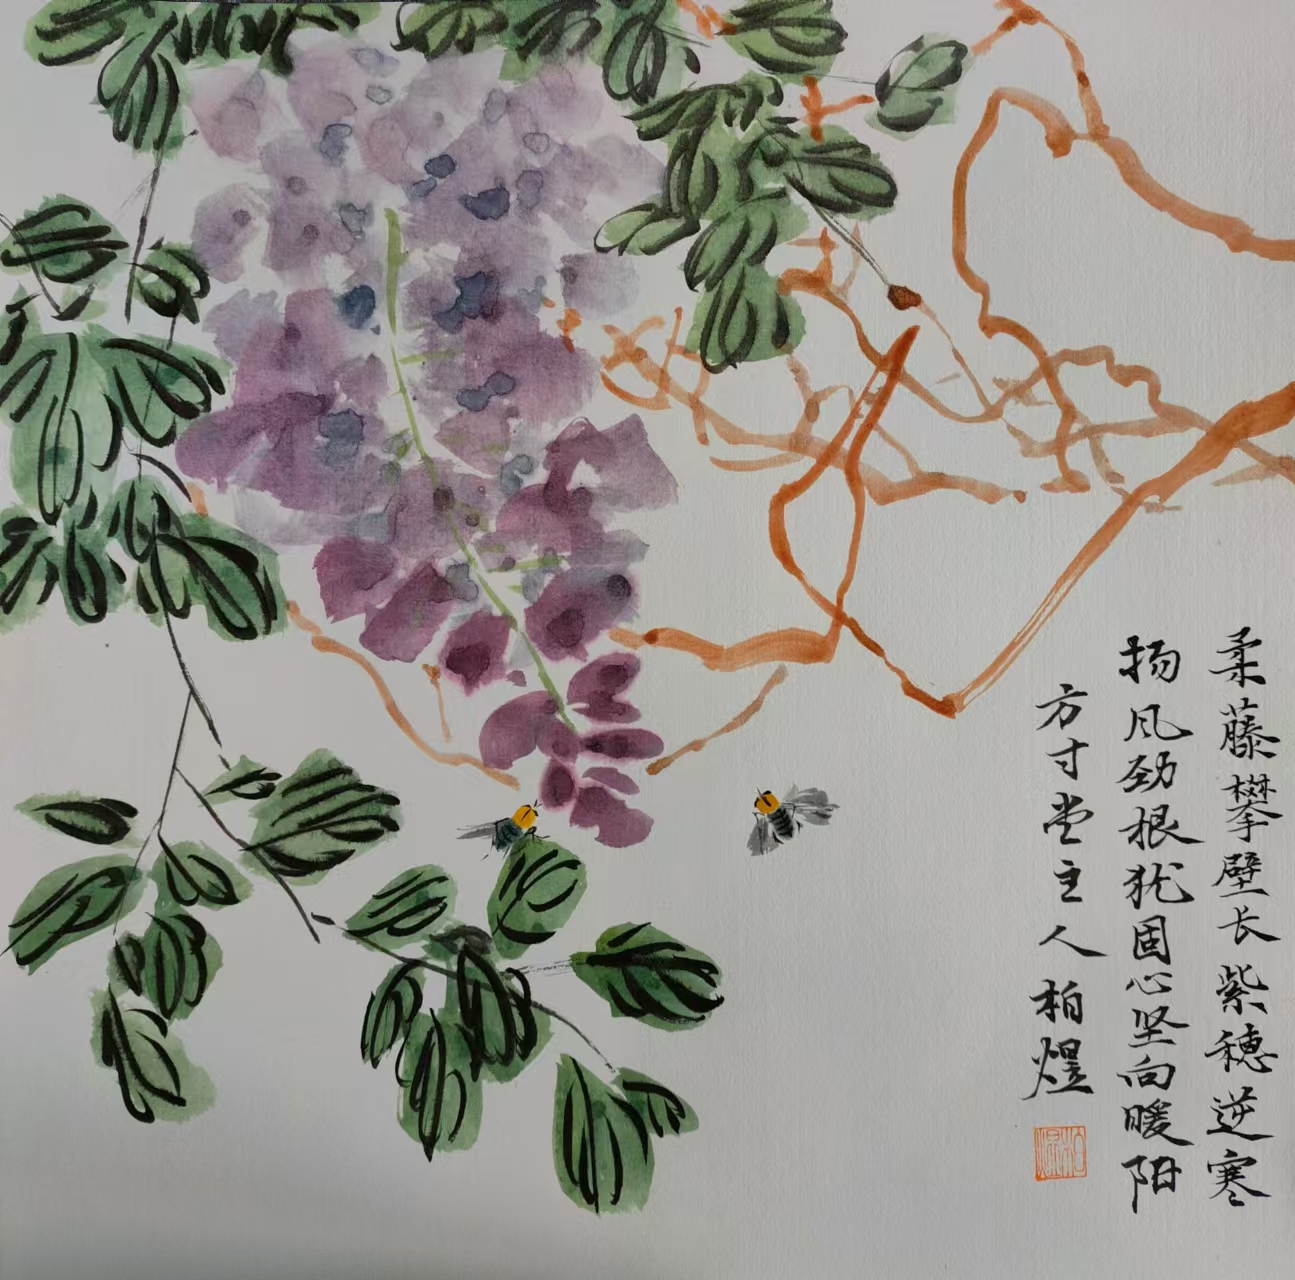 柔藤攀壁长紫穗逆寒
扬风劲根犹固心坚向暖阳
方寸堂主人柏煜
柏煜